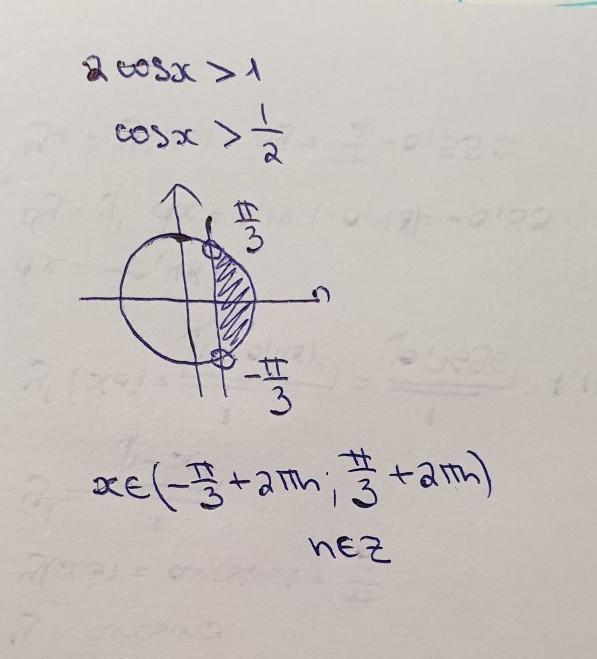 2 cosx > 1
cosx > 1/2
π/3
-π/3
x∈(-π/3 + 2πn; π/3 + 2πn)
n∈Z